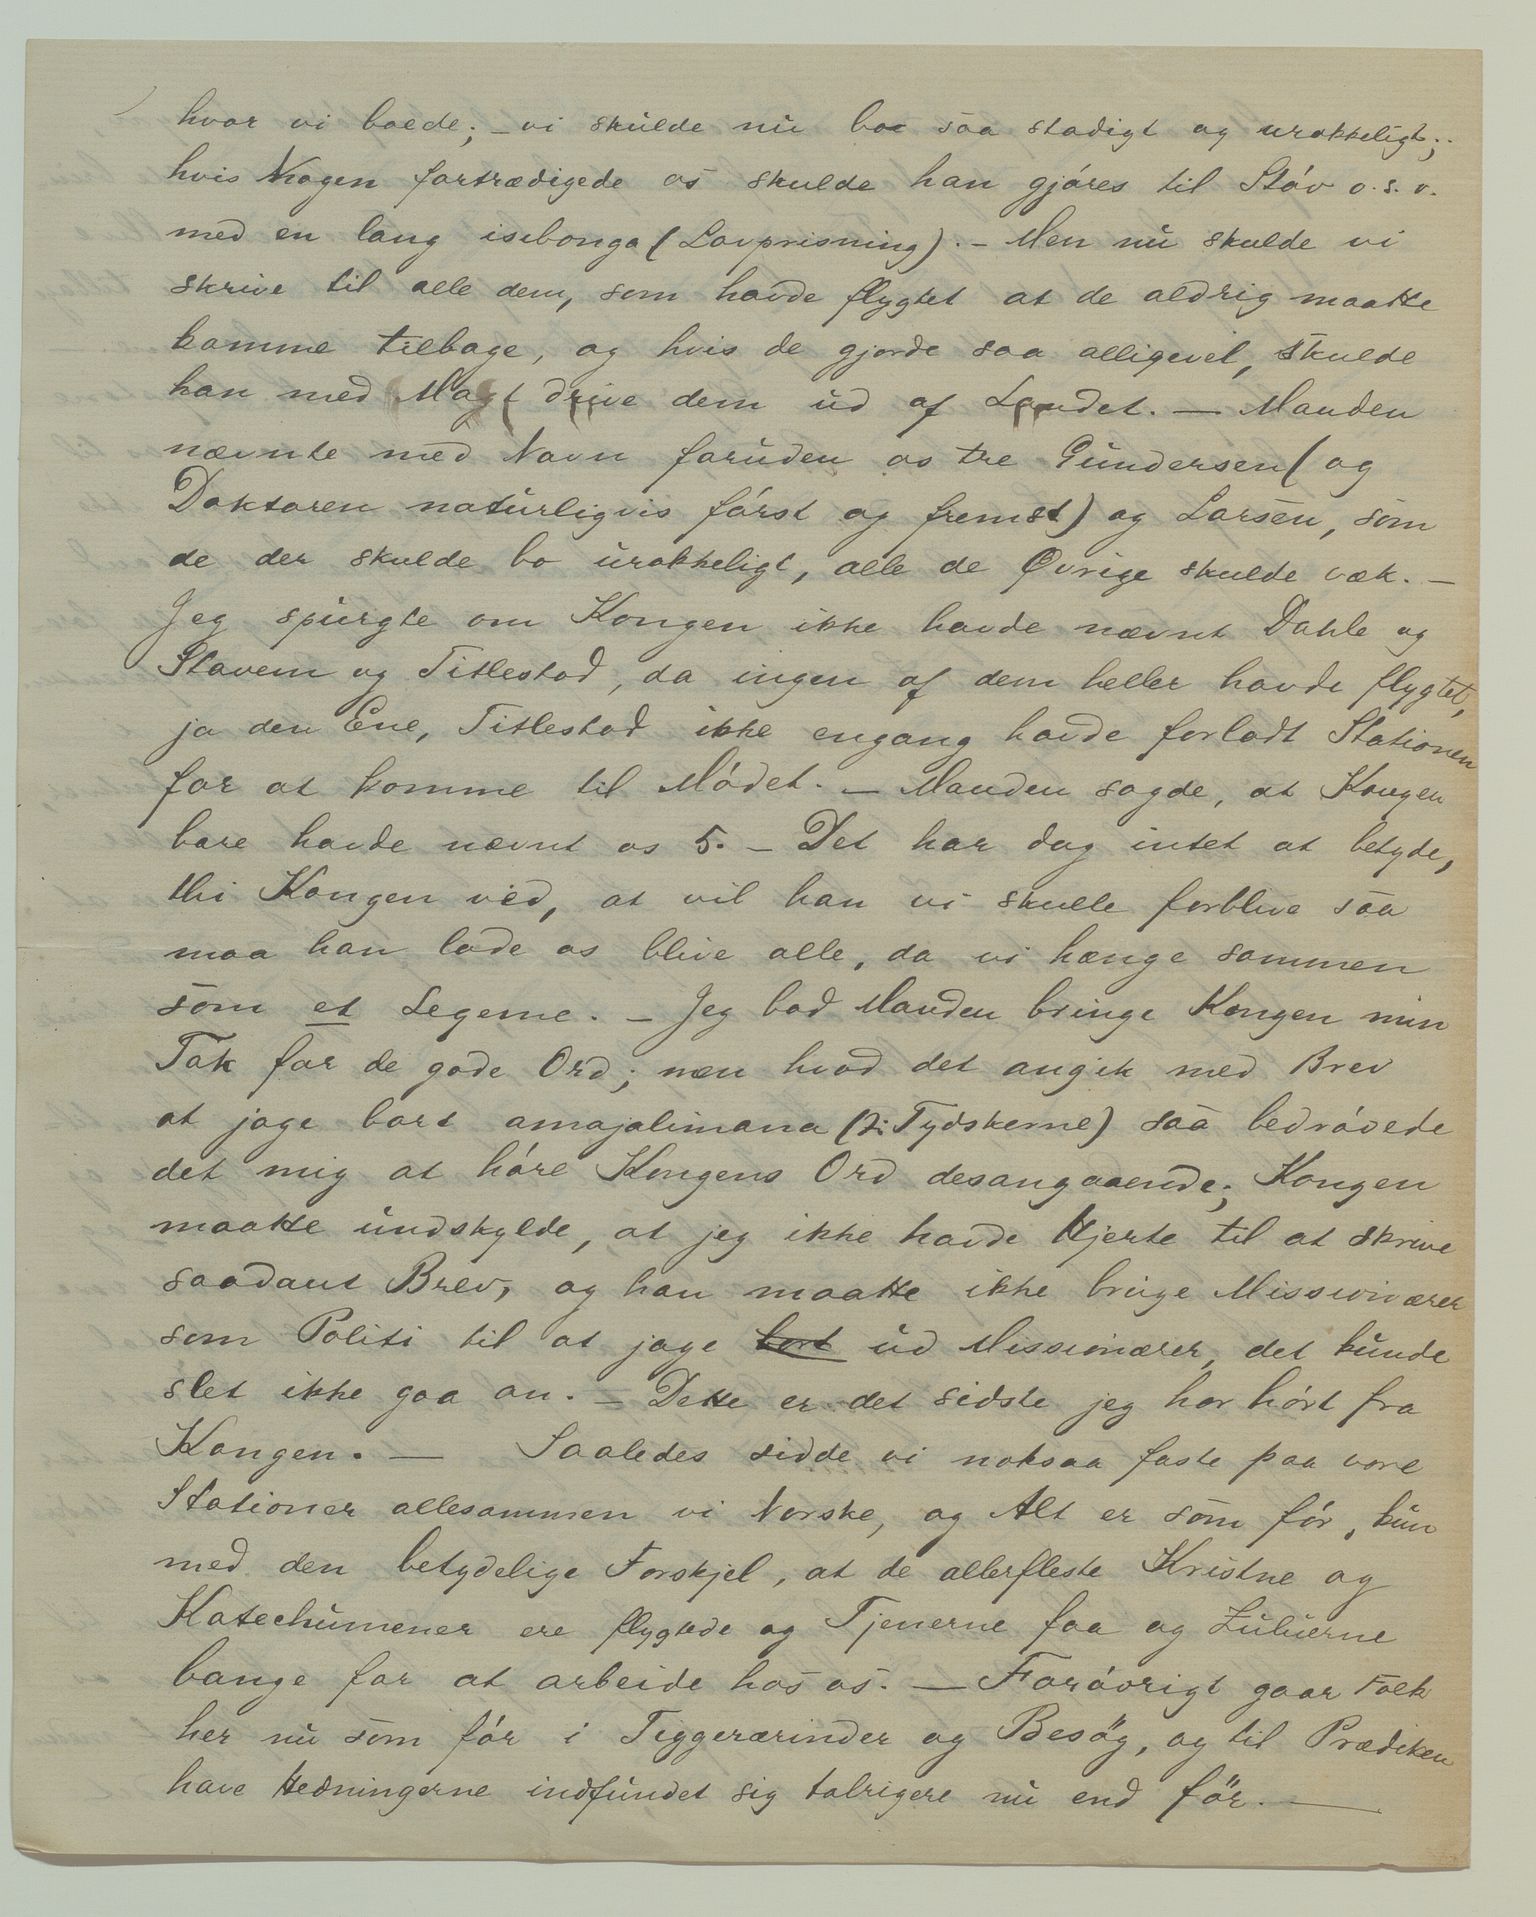 hvor vi boede; – vi skulde nu boe saa stadigt og urokkeligt;
hvis Nogen fortrædigede os skulde han gjóres til Stóv o.s.v.
med en lang isibonga (Lovprisning). – Men nu skulde vi
skrive til alle dem, som havde flygtet at de aldrig maatte
komme tilbage, og hvis de gjorde saa alligevel, skulde
han med Magt drive dem ud af Landet. — Manden
nævnte med Navn foruden os tre Gundersen (og
Doktoren naturligvis fórst og fremst) og Larsen, som
de der skulde bo urokkeligt, alle de Øvrige skulde væk. –
Jeg spurgte om Kongen ikke havde nævnt Dahle og
Stavem og Titlestad, da ingen af dem heller havde flygtet,
ja den Ene, Titlestad ikke engang havde forladt Stationen
for at komme til Módet. – Manden sagde, at Kongen
bare havde nævnt os 5. – Det har dog intet at betyde,
thi Kongen véd, at vil han vi skulle forblive saa
maa han lade os blive alle, da vi hænge sammen
som et Legeme. – Jeg bad Manden bringe Kongen min
Tak for de gode Ord; men hvad det angik med Brev
at jage bort amajalimana (ɔ: Tydskerne) saa bedróvede
det mig at hóre Kongens Ord desangaaende; Kongen
maatte undskylde, at jeg ikke havde Hjerte til at skrive
saadant Brev, og han maatte ikke bruge Missionærer
som Politi til at jage bort ud Missionærer, det kunde
slet ikke gaa an. – Dette er det sidste jeg har hórt fra
Kongen. — Saaledes sidde vi noksaa faste paa vore
Stationer allesammen vi Norske, og Alt er som fór, kun
med den betydelige Forskjel, at de allerfleste Kristne og
Katechumener ere flygtede og Tjenerne faa og Zuluerne
bange for at arbeide hos os. — Foróvrigt gaar Folk
her nu som fór i Tiggerærinder og Besög, og til Prædiken
have Hedningerne indfundet sig talrigere nu end för. —